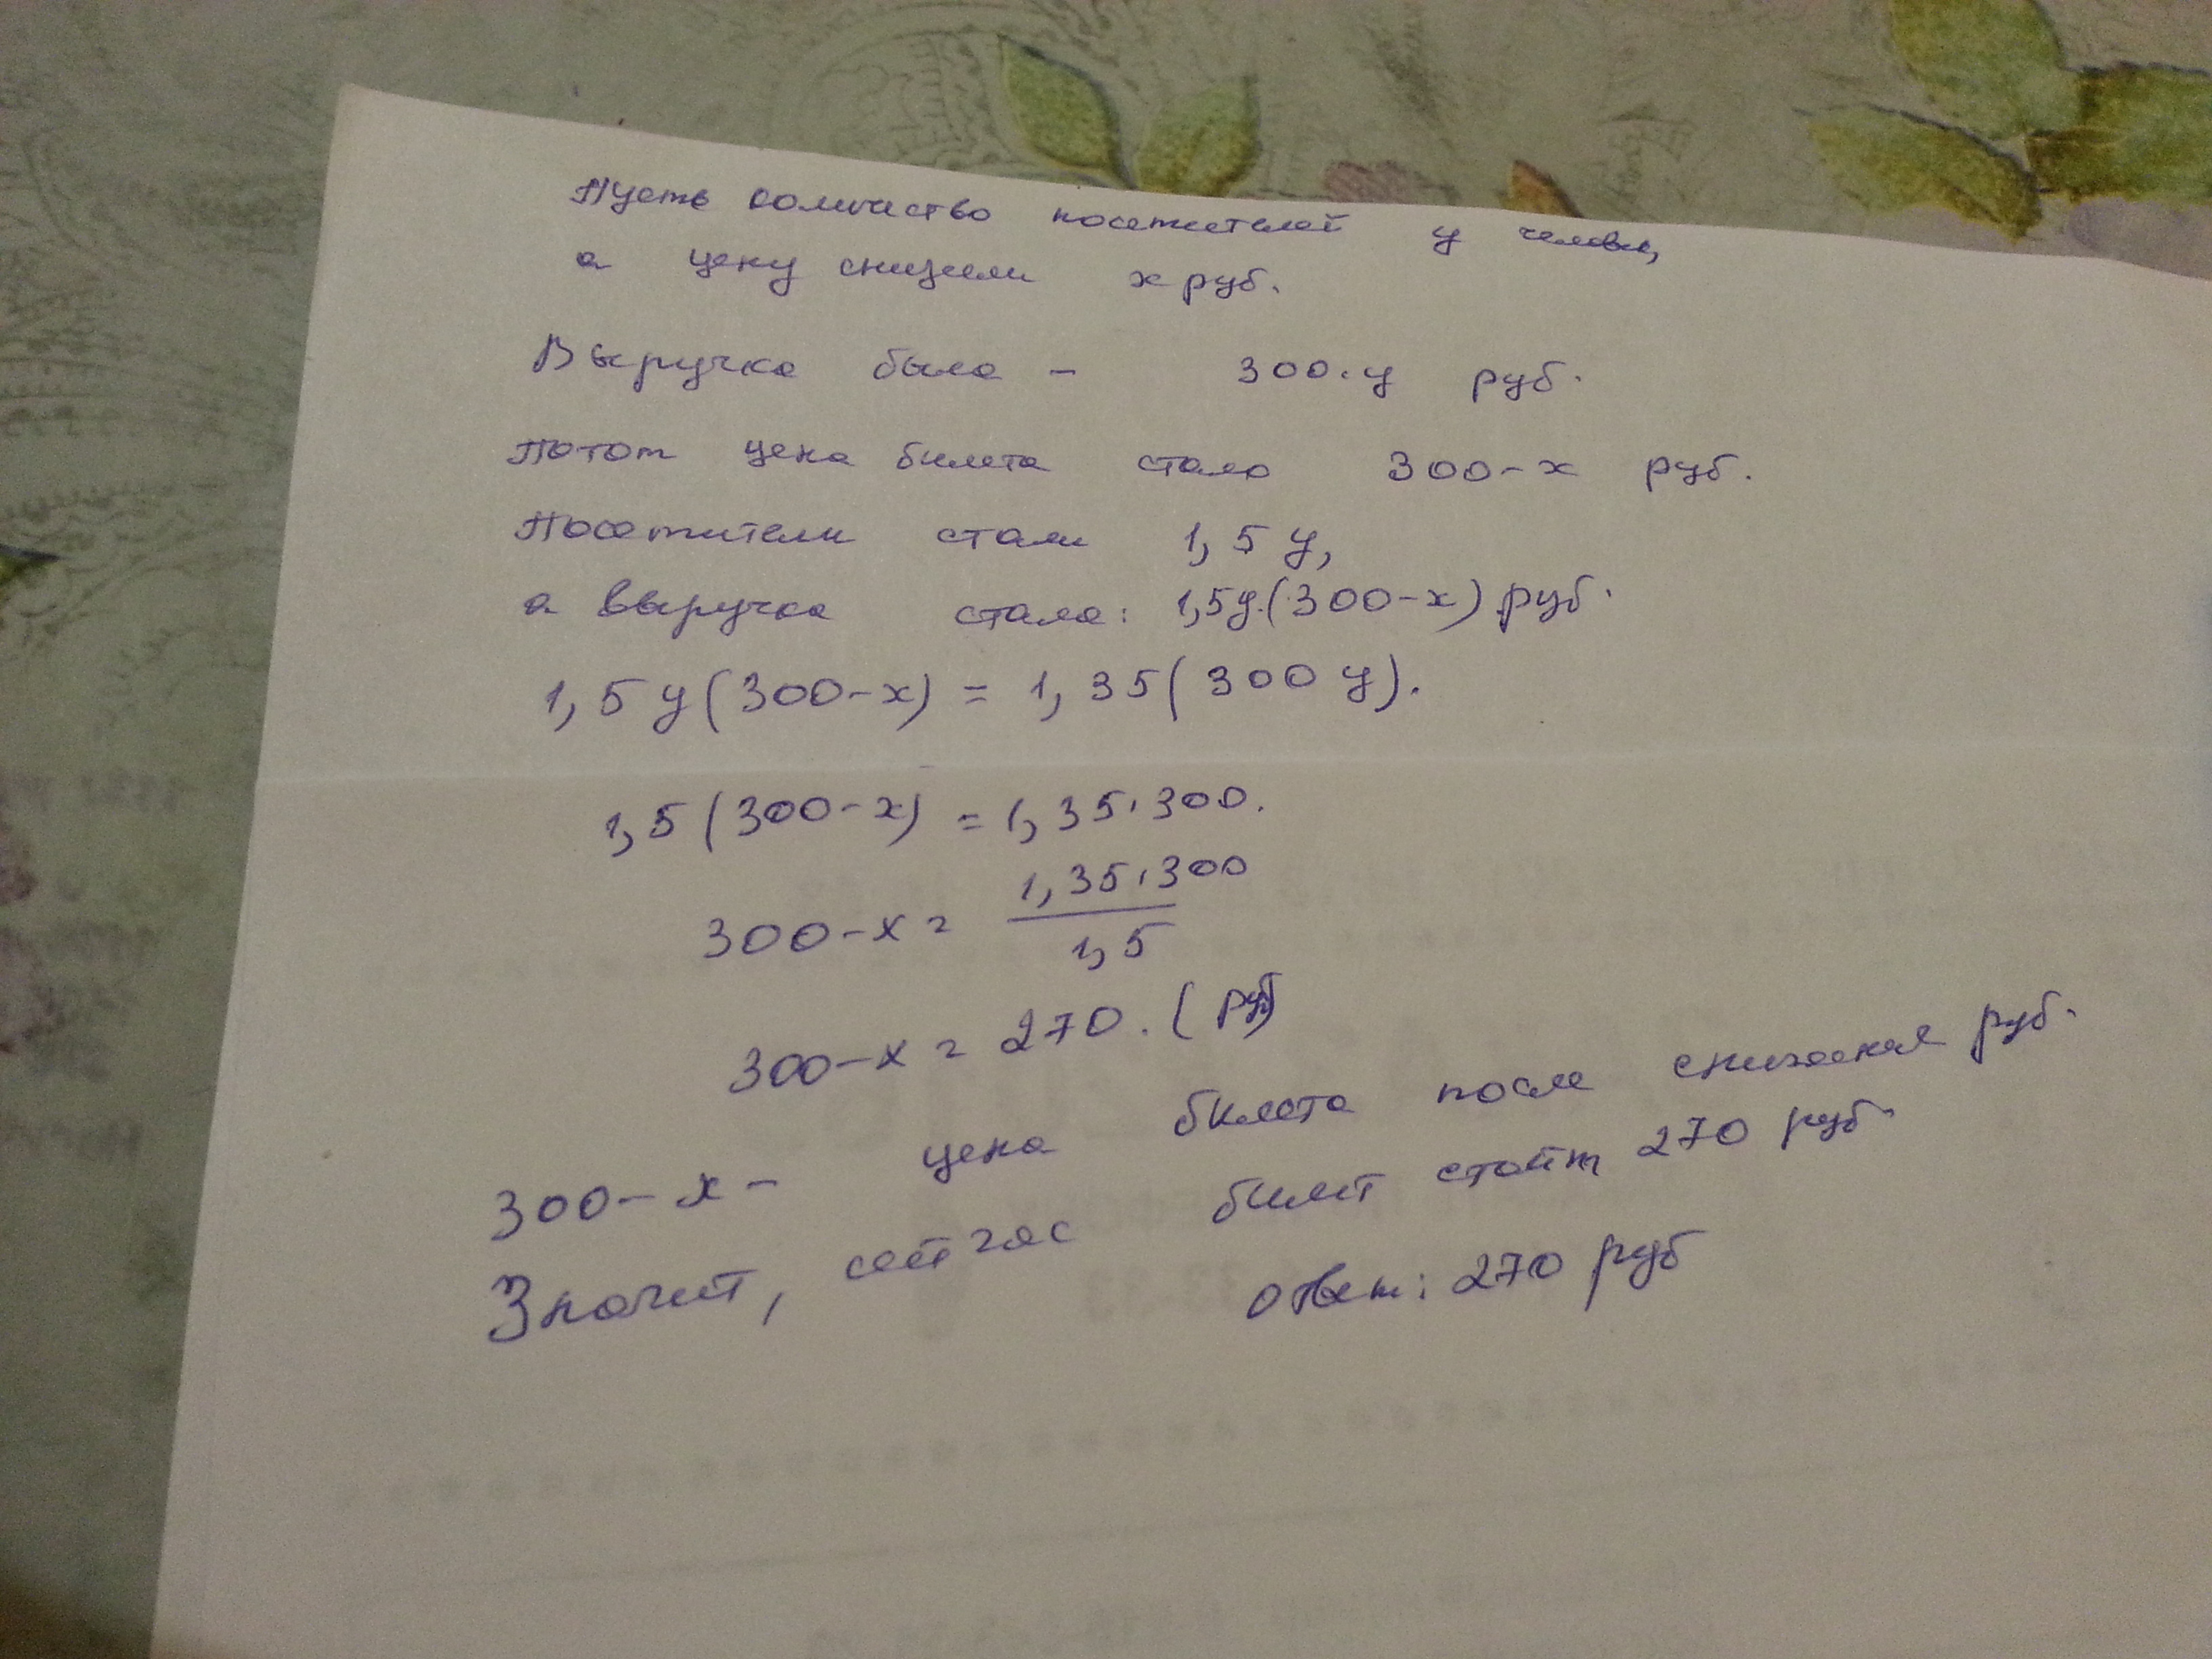 Пусть количество посетителей у человек,
а цену снизили х руб.
Выручка была - 300·у руб.
Потом цена билета стала 300-х руб.
Посетители стали 1,5 у,
а выручка стала: 1,5у·(300-х) руб.
1,5 у(300-х) = 1,35(300 у).
1,5(300-х) = 1,35·300.
300-х = 1,35·300 / 1,5
300-х = 270. (руб)
300-х - цена билета после снижения руб.
Значит, сейчас билет стоит 270 руб.
ответ: 270 руб